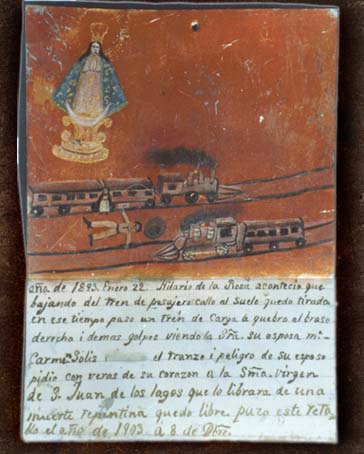 año de 1893. Enero 22. Hilario de la Rosa acontecio que
bajando del tren de pasajero: callo al Suelo quedo tirada
en ese tiempo paso un tren de Carga á quebro el braso
derecho i demas golpes viendo la Sra. su esposa Mª.
Carmª. Solis el tranze i peligro de Su esposo
pidio con veras de su corazon a la Sma. Virgen
de S. Juan de los lagos que lo librara de una
muerte repentina quedo libre. puzo este reta-
blo el año de 1903 á 8 de Dbre.